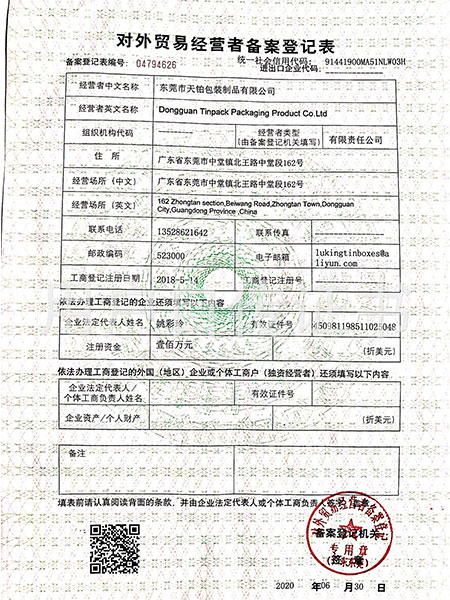 对外贸易经营者备案登记表
备案登记表编号: 04794626
统一社会信用代码: 91441900MA51NLW03H
进出口企业代码:
经营者中文名称 东莞市天铂包装制品有限公司
经营者英文名称 Dongguan Tinpack Packaging Product Co.Ltd
组织机构代码 --------- 经营者类型 (由备案登记机关填写) 有限责任公司
住 所 广东省东莞市中堂镇北王路中堂段162号
经营场所（中文） 广东省东莞市中堂镇北王路中堂段162号
经营场所（英文） 162 Zhongtan section,Beiwang Road,Zhongtan Town,Dongguan
City,Guangdong Province ,China
联系电话 13528621642 联系传真
邮政编码 523000 电子邮箱 lukingtinboxes@a
liyun.com
工商登记注册日期 2018-5-14 工商登记注册号
依法办理工商登记的企业还须填写以下内容
企业法定代表人姓名 姚彩玲 有效证件号 450981198511025048
注册资金 壹佰万元 (折美元)
依法办理工商登记的外国（地区）企业或个体工商户（独资经营者）还须填写以下内容
企业法定代表人/
个体工商负责人姓名 有效证件号
企业资产/个人财产 (折美元)
备注
填表前请认真阅读背面的条款，并由企业法定代表人或个体工商负责人
对外贸易经营者备案登记
备案登记机关
专用章
(签 章)
2020 年 06 月 30 日